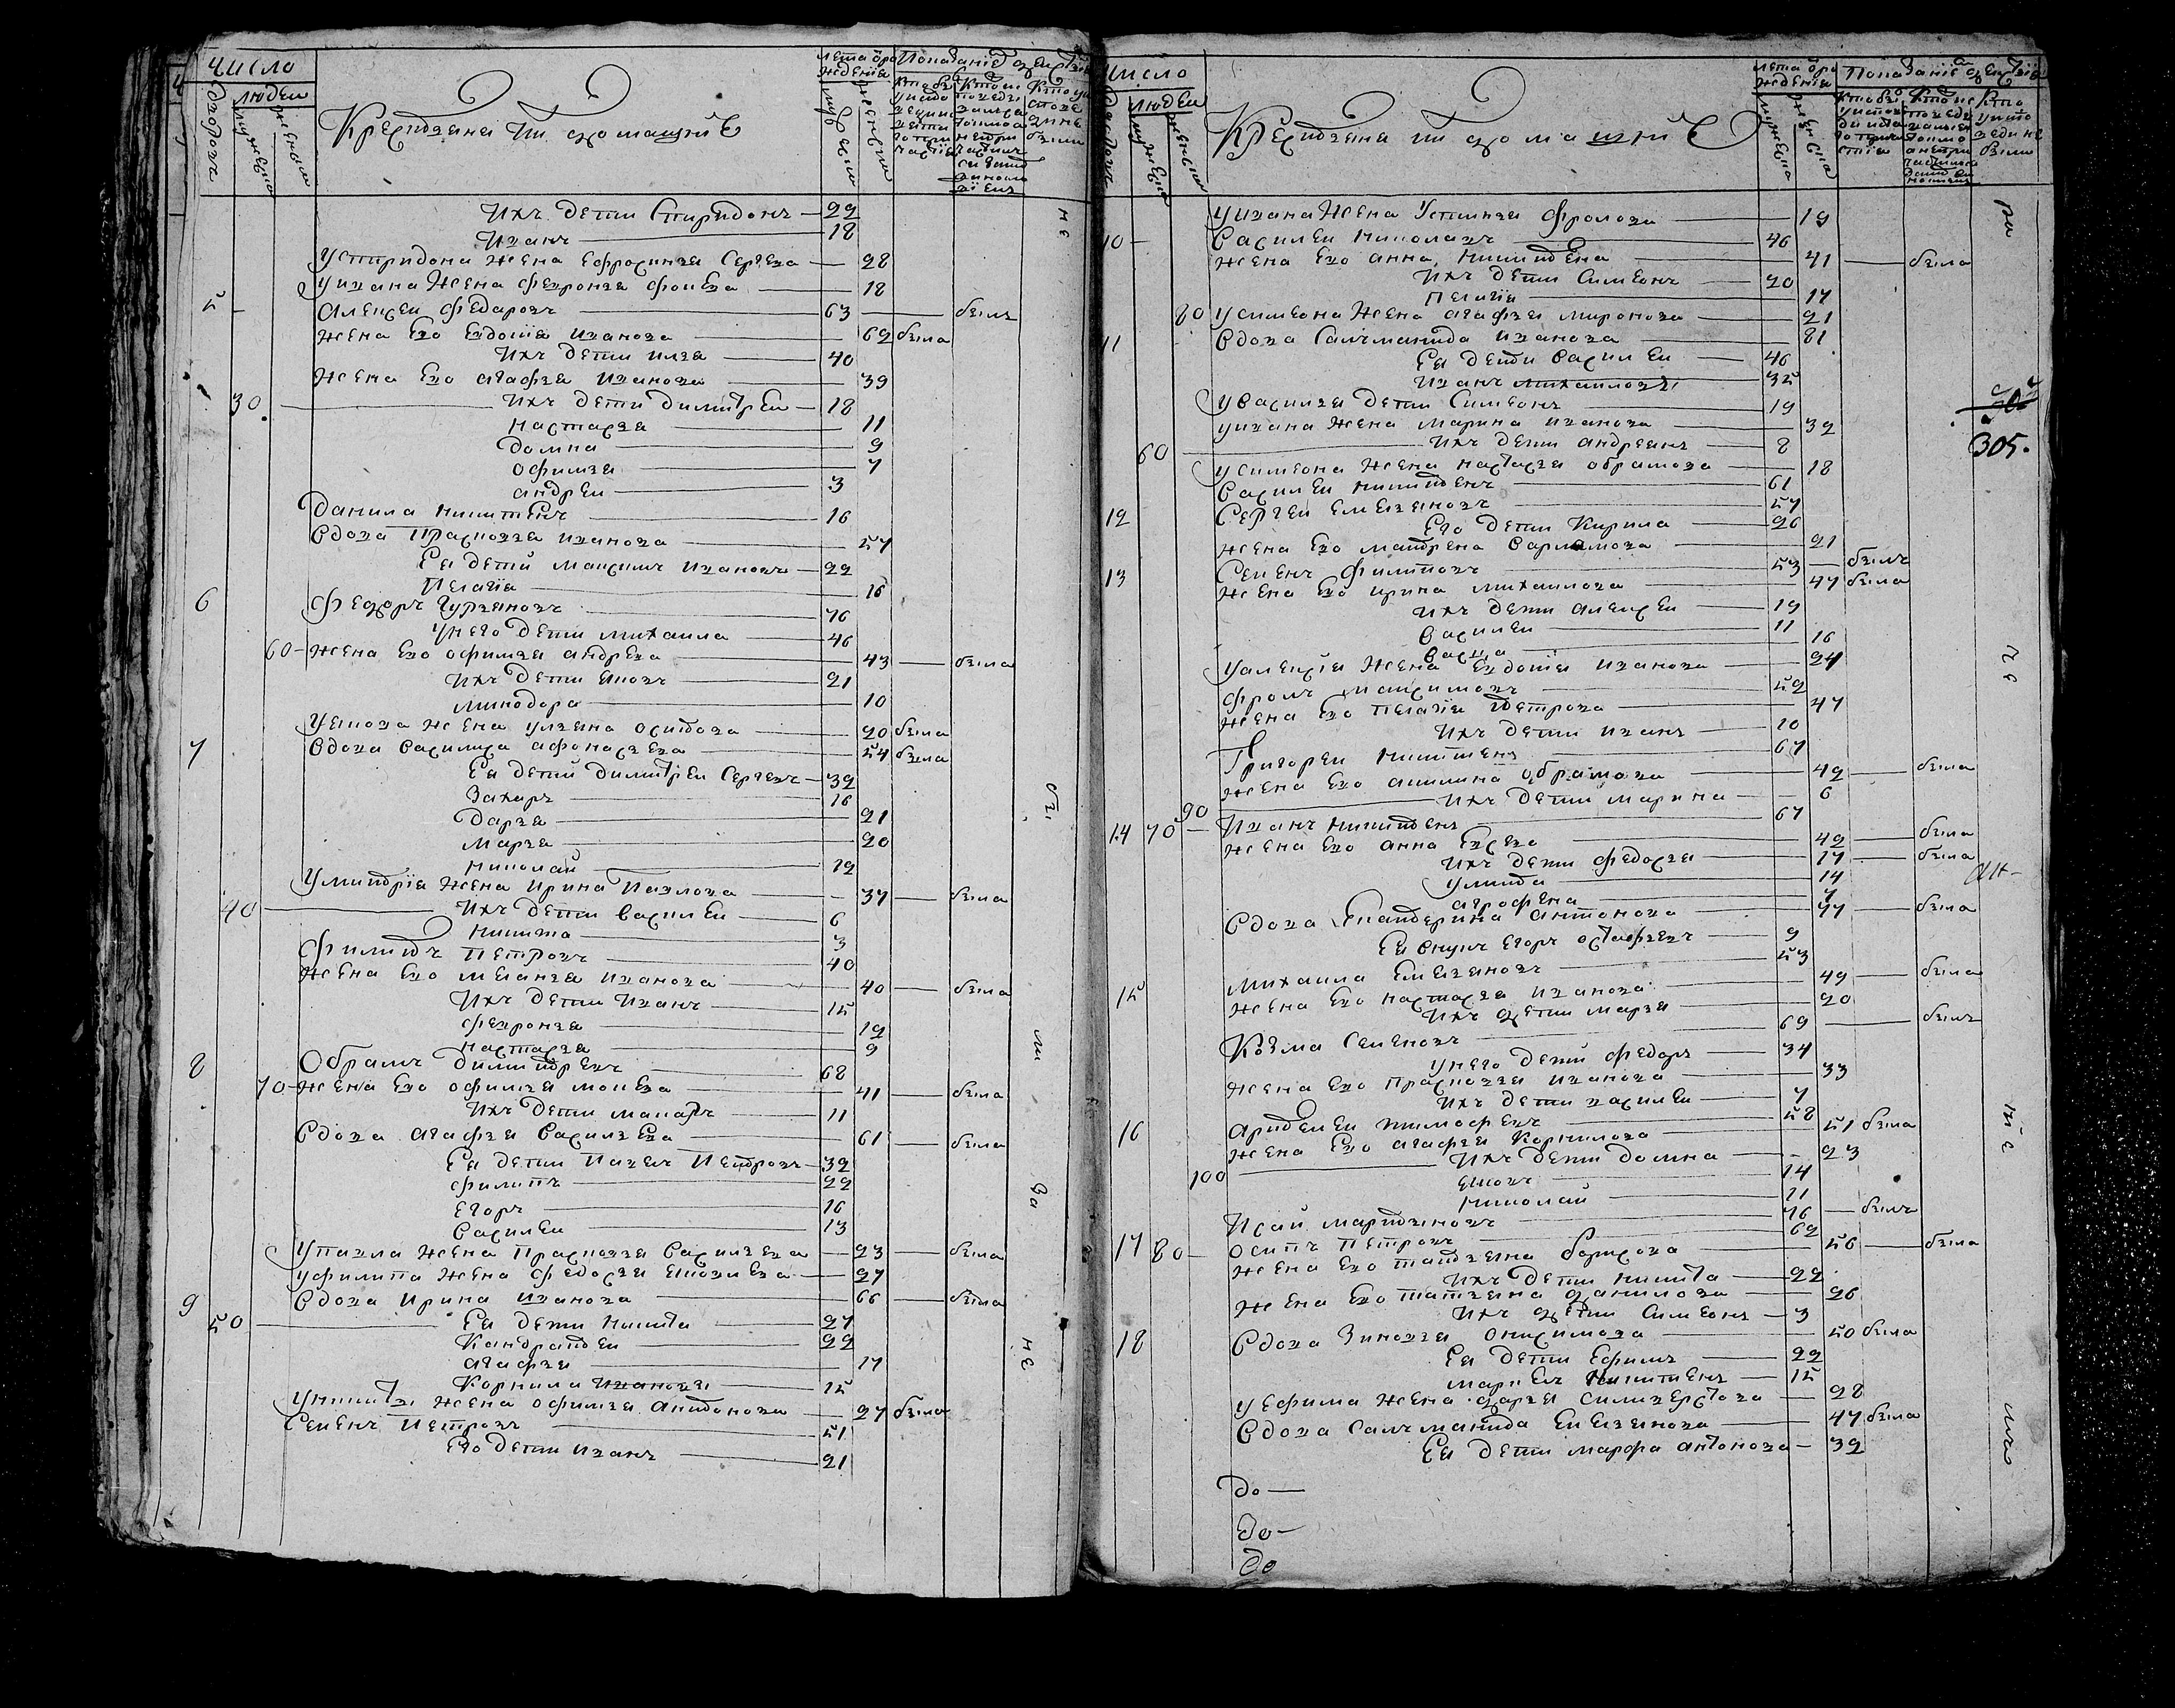 число
людеи
Крестьяне и их домашние
лета от рождения
Показание о бытии
Ихъ дети Спиридонъ — 22
Иванъ — 18
У Спиридона жена Ефросинья Сергева — 28
У Ивана жена Февронья Фокева — 18
5 — Алексеи Федаровъ — 63 — былъ
жена ево Евдокия Иванова — 62 была
Ихъ дети Илья — 40
жена ево Агафья Иванова — 39
30 — Ихъ дети Димитреи — 18
Настасья — 11
Домна — 9
Офимья — 7
Андреи — 3
Данила Никитенъ — 16
Вдова Прасковья Иванова — 57
Ея детей Максимъ Ивановъ — 22
Пелагия — 16
6 Федоръ Гурьяновъ — 76
У него дети Михаила — 46
60 — жена ево Офимья Андрева — 43 — была
Ихъ дети Яковъ — 21
Минодора — 10
У Якова жена Ульяна Осипова — 20 была
7 Вдова Василиса Афонасьева — 54 была
Ея детей Димитреи Сергевъ — 32
Захаръ — 16
Дарья — 21
Марья — 20
Николай — 12
У Митрия жена Ирина Павлова — 37 — была
40 — Ихъ дети Василеи — 6
Никита — 3
Филипъ Петровъ — 40
жена ево Меланья Иванова — 40 — была
Ихъ дети Иванъ — 15
Февронья — 12
Настасья — 9
8 Обрамъ Димитревъ — 68
70 — жена ево Офимья Мокева — 41 — была
Ихъ дети Макаръ — 11
Вдова Агафья Васильева — 61 — была
Ея дети Павелъ Петровъ — 32
Филипъ — 22
Егоръ — 16
Василеи — 13
У Павла жена Прасковья Васильева — 23 — была
У Филипа жена Федосья Яковлева — 27
9 Вдова Ирина Иванова — 66 — была
50 — Ея дети Никита — 27
Кандратеи — 22
Агафья — 17
Корнила Ивановы — 15
У Никиты жена Офимья Антонова — 27 была
Семенъ Петровъ — 51
Его дети Иванъ — 21
не
бы
ли
за
не
число
людеи
Крестьяне и их домашние
лета от рождения
Показание о бытии
У Ивана жена Устинья Фролова — 19
10 — Василеи Николаевъ — 46
жена ево Анна Никитена — 41 — была
Ихъ дети Симионъ — 20
Пелагия — 17
80 У Симеона жена Агафья Миронова — 21
11 Вдова Саломанида Иванова — 81
Ея дети Василеи — 46
Иванъ Михаиловы — 35
У Василья дети Симеонъ — 19
У Ивана жена Марина Иванова — 32
60 — Ихъ дети Андреянъ — 8
У Симеона жена Настасья Обрамова — 18
Василеи Никитенъ — 61
12 Сергеи Емельяновъ — 57
Его дети Кирила — 26
жена ево Матрена Варламова — 21
13 Семенъ Филиповъ — 53 — былъ
жена ево Ирина Михаилова — 47 была
Ихъ дети Алексеи — 19
Василеи — 11
16
У Алексея жена Евдокия Иванова — 24
Фролъ Максимовъ — 52
жена ево Пелагия Петрова — 47
Ихъ дети Иванъ — 10
Григореи Никитенъ — 67
жена ево Акилина Обрамова — 42 — была
90 — Ихъ дети Марина — 6
14 70 — Иванъ Никитенъ — 67
жена ево Анна Евсева — 42 — была
Ихъ дети Федосья — 17 — была
Улита — 14
Агрофена — 7
Вдова Екатерина Антонова — 77 — была
Ея внукъ Егоръ Остафьевъ — 9
Михаила Емельяновъ — 53
15 жена ево Настасья Иванова — 49 — была
Ихъ дети Марья — 20
Козма Семеновъ — 69 — былъ
У него дети Федоръ — 34
жена ево Прасковья Иванова — 33
Ихъ дети Василеи — 7
16 Ардеинеи Тимофевъ — 58
жена ево Агафья Корнилова — 51 была
100 — Ихъ дети Домна — 23
Яковъ — 14
Николай — 11
Исай Мартыновъ — 76 — былъ
17 80 — Осипъ Петровъ — 62
жена ево Татьяна Борисова — 56 — была
Ихъ дети Никита — 22
жена ево Татьяна Данилова — 26
Ихъ дети Симеонъ — 3
18 Вдова Зиновья Онисимова — 50 была
Ея дети Ефимъ — 22
Маркелъ Никитены — 15
У Ефима жена Дарья Силиверстова — 28
Вдова Саломанида Емельянова — 47 была
Ея дети Марфа Антонова — 32
до —
до —
до
ра
305.
ли